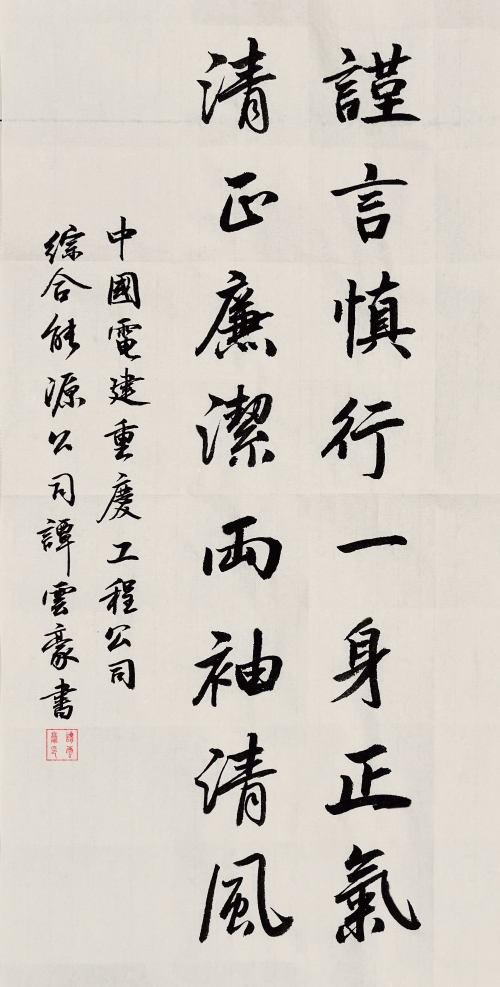 謹言慎行一身正氣
清正廉潔兩袖清風
中國電建重慶工程公司
綜合能源公司譚雲豪書